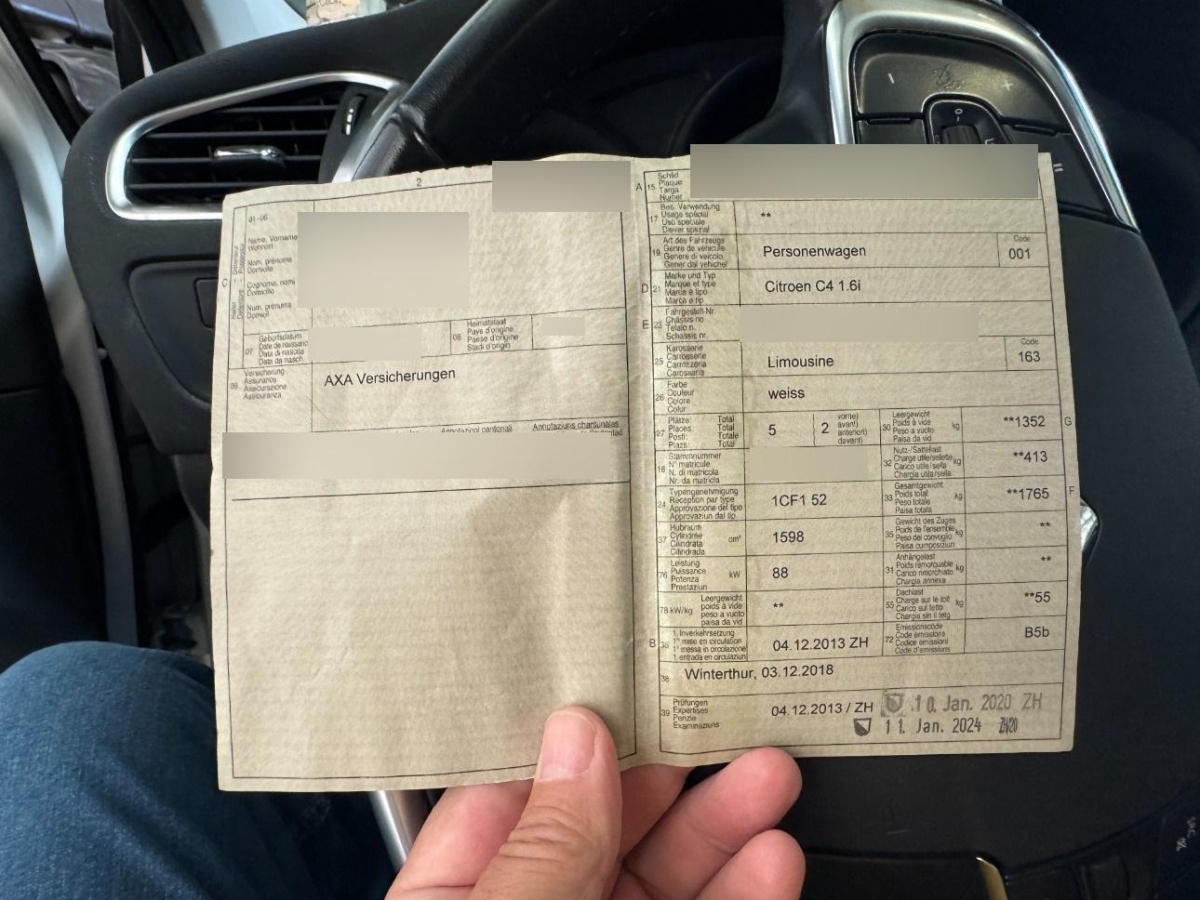 2
01-06
Name, Vorname
Wohnort
Nom, prénoms
Domicile
Cognome, nomi
Domicilio
Num, prenums
Domicil
C
07
Geburtsdatum
Date de naissance
Data di nascita
Data da nasch.
08
Heimatstaat
Pays d'origine
Paese d'origine
Stadi d'origin
09
Versicherung
Assurance
Assicurazione
Assicuranza
AXA Versicherungen
Annotazioni cantonali
Annotaziuns chantunalas
A 15
Schild
Plaque
Targa
Numer
17
Bes. Verwendung
Usage spécial
Uso speciale
Diever spezial
**
19
Art des Fahrzeugs
Genre de véhicule
Genere di veicolo
Gener dal vehichel
Personenwagen
Code
001
D 21
Marke und Typ
Marque et type
Marca e tipo
Marca e tip
Citroen C4 1.6i
E 23
Fahrgestell-Nr.
Châssis no
Telaio n.
Schassis nr.
25
Karosserie
Carrosserie
Carrozzeria
Carossaria
Limousine
Code
163
26
Farbe
Couleur
Colore
Colur
weiss
27
Plätze: Total
Places: Total
Posti: Totale
Plazs: Total
5
2
vorne)
avant)
anteriori)
davant)
30
Leergewicht
Poids à vide
Peso a vuoto
Paisa da vid
kg
**1352
G
18
Stammnummer
N° matricule
N. di matricola
Nr. da matricla
32
Nutz-/Sattellast
Charge utile/sellette
Carico utile/sella
Chargia utila/sella
kg
**413
24
Typengenehmigung
Réception par type
Approvazione del tipo
Approvaziun dal tip
1CF1 52
33
Gesamtgewicht
Poids total
Peso totale
Paisa totala
kg
**1765
F
37
Hubraum
Cylindrée
Cilindrata
Cilindrada
cm³
1598
35
Gewicht des Zuges
Poids de l'ensemble
Peso del convoglio
Paisa cumposiziun
kg
**
76
Leistung
Puissance
Potenza
Prestaziun
kW
88
31
Anhängelast
Poids remorquable
Carico rimorchiato
Chargia annexa
kg
**
78 kW/kg
Leergewicht
poids à vide
peso a vuoto
paisa da vid
**
55
Dachlast
Charge sur le toit
Carico sul tetto
Chargia sin il tetg
kg
**55
B 36
1. Inverkehrsetzung
1re mise en circulation
1a messa in circolazione
1. entrada en circulaziun
04.12.2013 ZH
72
Emissionscode
Code émissions
Codice emissioni
Code d'emissiuns
B5b
38
Winterthur, 03.12.2018
39
Prüfungen
Expertises
Perizie
Examinaziuns
04.12.2013 / ZH
10. Jan. 2020 ZH
11. Jan. 2024